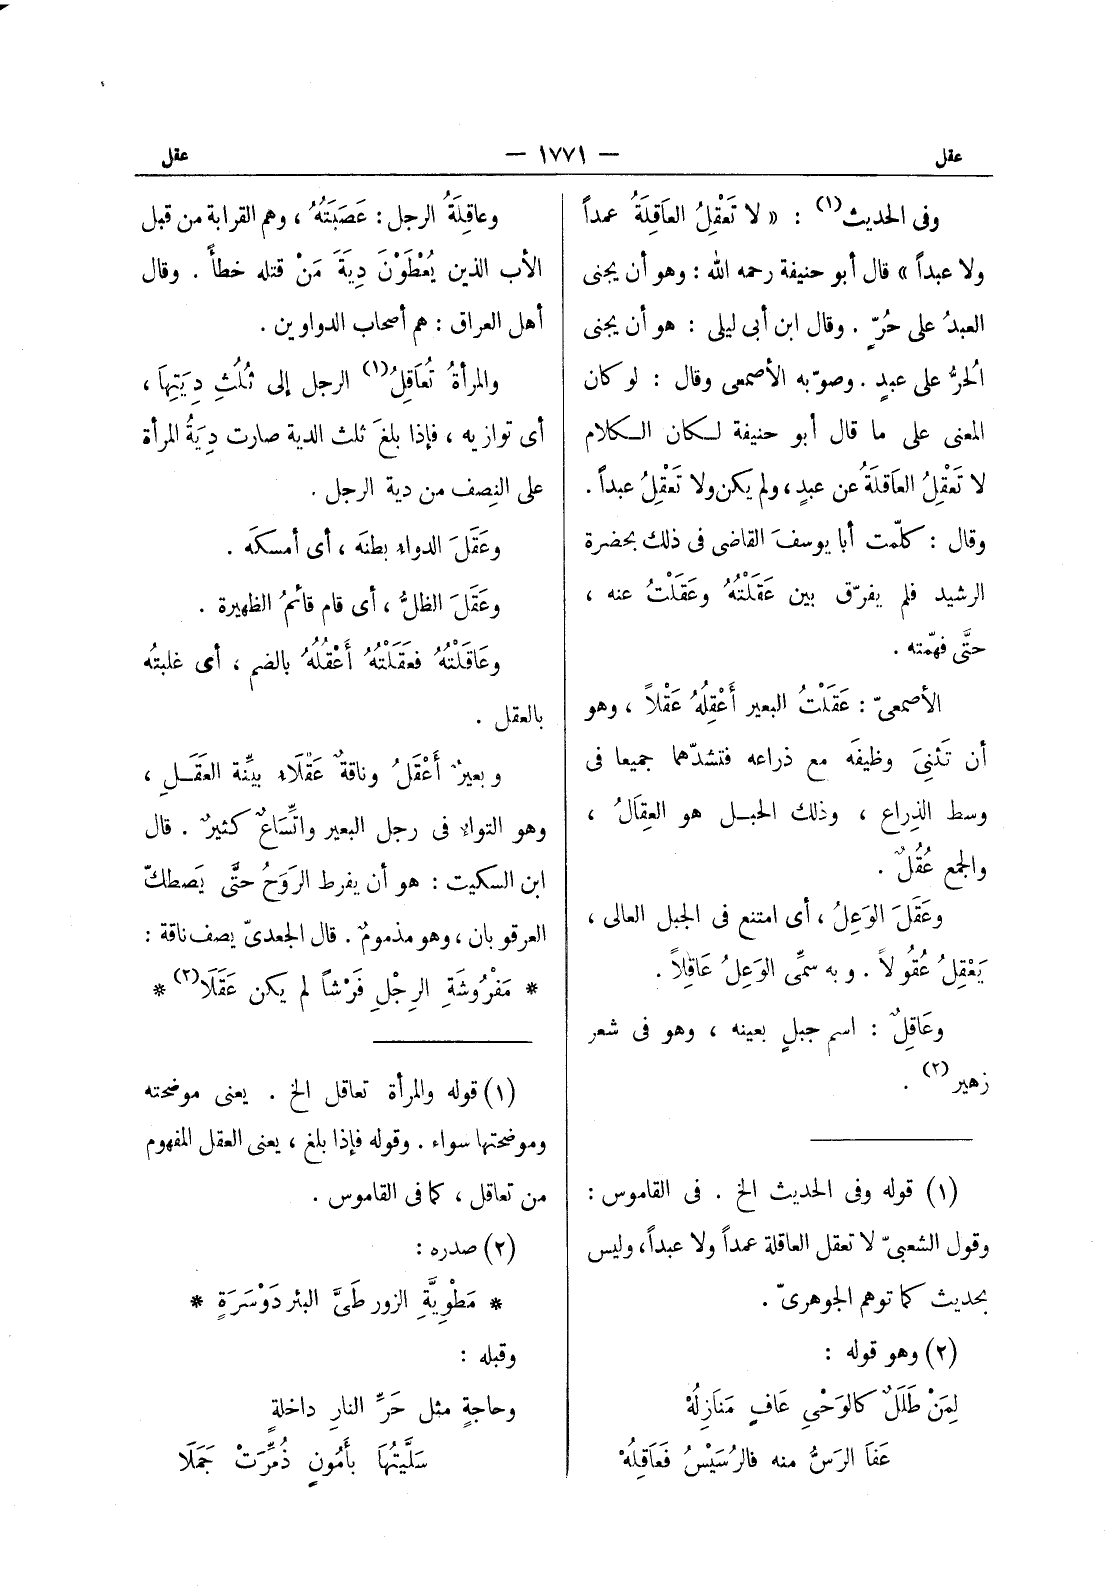 عقل
— ١٧٧١ —
عقل
وفى الحديث(١) : « لا تَعْقِلُ العَاقِلَةُ عمداً
ولا عبداً » قال أبو حنيفة رحمه الله : وهو أن يجنى
العبدُ على حُرّ . وقال ابن أبى ليلى : هو أن يجنى
الُحرُّ على عبدٍ . وصوّبه الأصمعى وقال : لو كان
المعنى على ما قال أبو حنيفة لكان الكلام
لا تَعْقِلُ العَاقلةُ عن عبدٍ ، ولم يكن ولا تَعْقِلُ عبداً .
وقال : كلّمت أبا يوسفَ القاضى فى ذلك بحضرة
الرشيد فلم يفرّق بين عَقَلْتُهُ وعَقَلْتُ عنه ،
حتَّى فهّمته .
الأصمعىّ : عَقَلْتُ البعير أَعْقِلُهُ عَقْلاً ، وهو
أن تَثْنِىَ وظيفَه مع ذراعه فتشدّهما جميعا فى
وسط الذِراع ، وذلك الحبل هو العِقَالُ ،
والجمع عُقُلٌ .
وعَقَلَ الوَعِلُ ، أى امتنع فى الجبل العالى ،
يَعْقِلُ عُقُولاً . وبه سمِّى الوَعِلُ عَاقِلاً .
وعَاقِلٌ : اسم جبلٍ بعينه ، وهو فى شعر
زهير(٢) .
(١) قوله وفى الحديث الخ . فى القاموس :
وقول الشعبىّ لا تعقل العاقلة عمداً ولا عبداً، وليس
بحديث كما توهم الجوهرىّ .
(٢) وهو قوله :
لِمَنْ طَلَلٌ كالوَحْىِ عَافٍ مَنَازِلُهْ
عَفَا الرَسُّ منه فالرُسَيْسُ فَعَاقِلُهْ
وعاقِلَةُ الرجل : عَصَبَتُهُ ، وهم القرابة من قبل
الأب الذين يُعْطَوْنَ دِيَةَ مَنْ قتله خطأً . وقال
أهل العراق : هم أصحاب الدواوين .
والمرأةُ تُعَاقِلُ(١) الرجل إلى ثُلُثِ دِيَتِهَا ،
أى توازيه ، فإذا بلغَ ثلث الدية صارت دِيَةُ المرأة
على النِصف من دية الرجل .
وعَقَلَ الدواء بطنَه ، أى أمسكَه .
وعَقَلَ الظلُّ ، أى قام قائمُ الظهيرة .
وعَاقَلْتُهُ فعَقَلْتُهُ أَعْقُلُهُ بالضم ، أى غلبتُه
بالعقل .
وبعيرٌ أَعْقَلُ وناقةٌ عَقْلَاء بيِّنة العَقَلِ ،
وهو التواء فى رجل البعير واتِّسَاعٌ كثيرٌ . قال
ابن السكيت : هو أن يفرط الرَوَحُ حتَّى يَصطكّ
العرقوبان ، وهو مذمومٌ . قال الجعدىّ يصف ناقة :
* مَفْرُوشَةِ الرِجْلِ فَرْشاً لم يكن عَقَلَا(٢) *
(١) قوله والمرأة تعاقل الخ . يعنى موضحته
وموضحتها سواء . وقوله فإذا بلغ ، يعنى العقل المفهوم
من تعاقل ، كما فى القاموس .
(٢) صدره :
* مَطْوِيَّةِ الزور طَىَّ البئر دَوْسَرَةٍ *
وقبله :
وحاجةٍ مثل حَرِّ النارِ داخلةٍ
سَلَّيتُهَا بأَمُونٍ ذُمِّرَتْ جَمَلَا